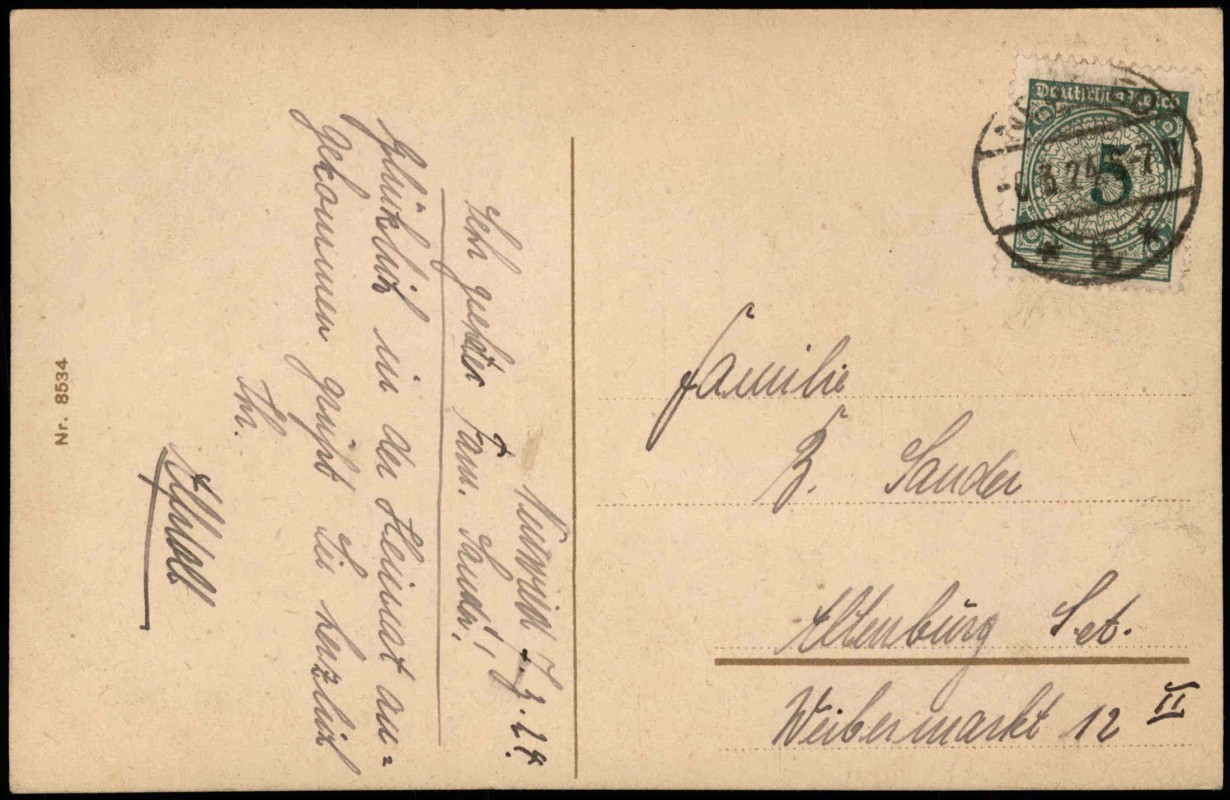 Neuwied 7. 3. 24.
Sehr geehrte Fam. Sander!
Glücklich in der Heimat an-
gekommen grüßt Sie herzlich
Ihr.
Nr. 8534
Deutsches Reich
5
24 5-7 N
* a *
Familie
B. Sander
Altenburg S.-A.
Weibermarkt 12 II